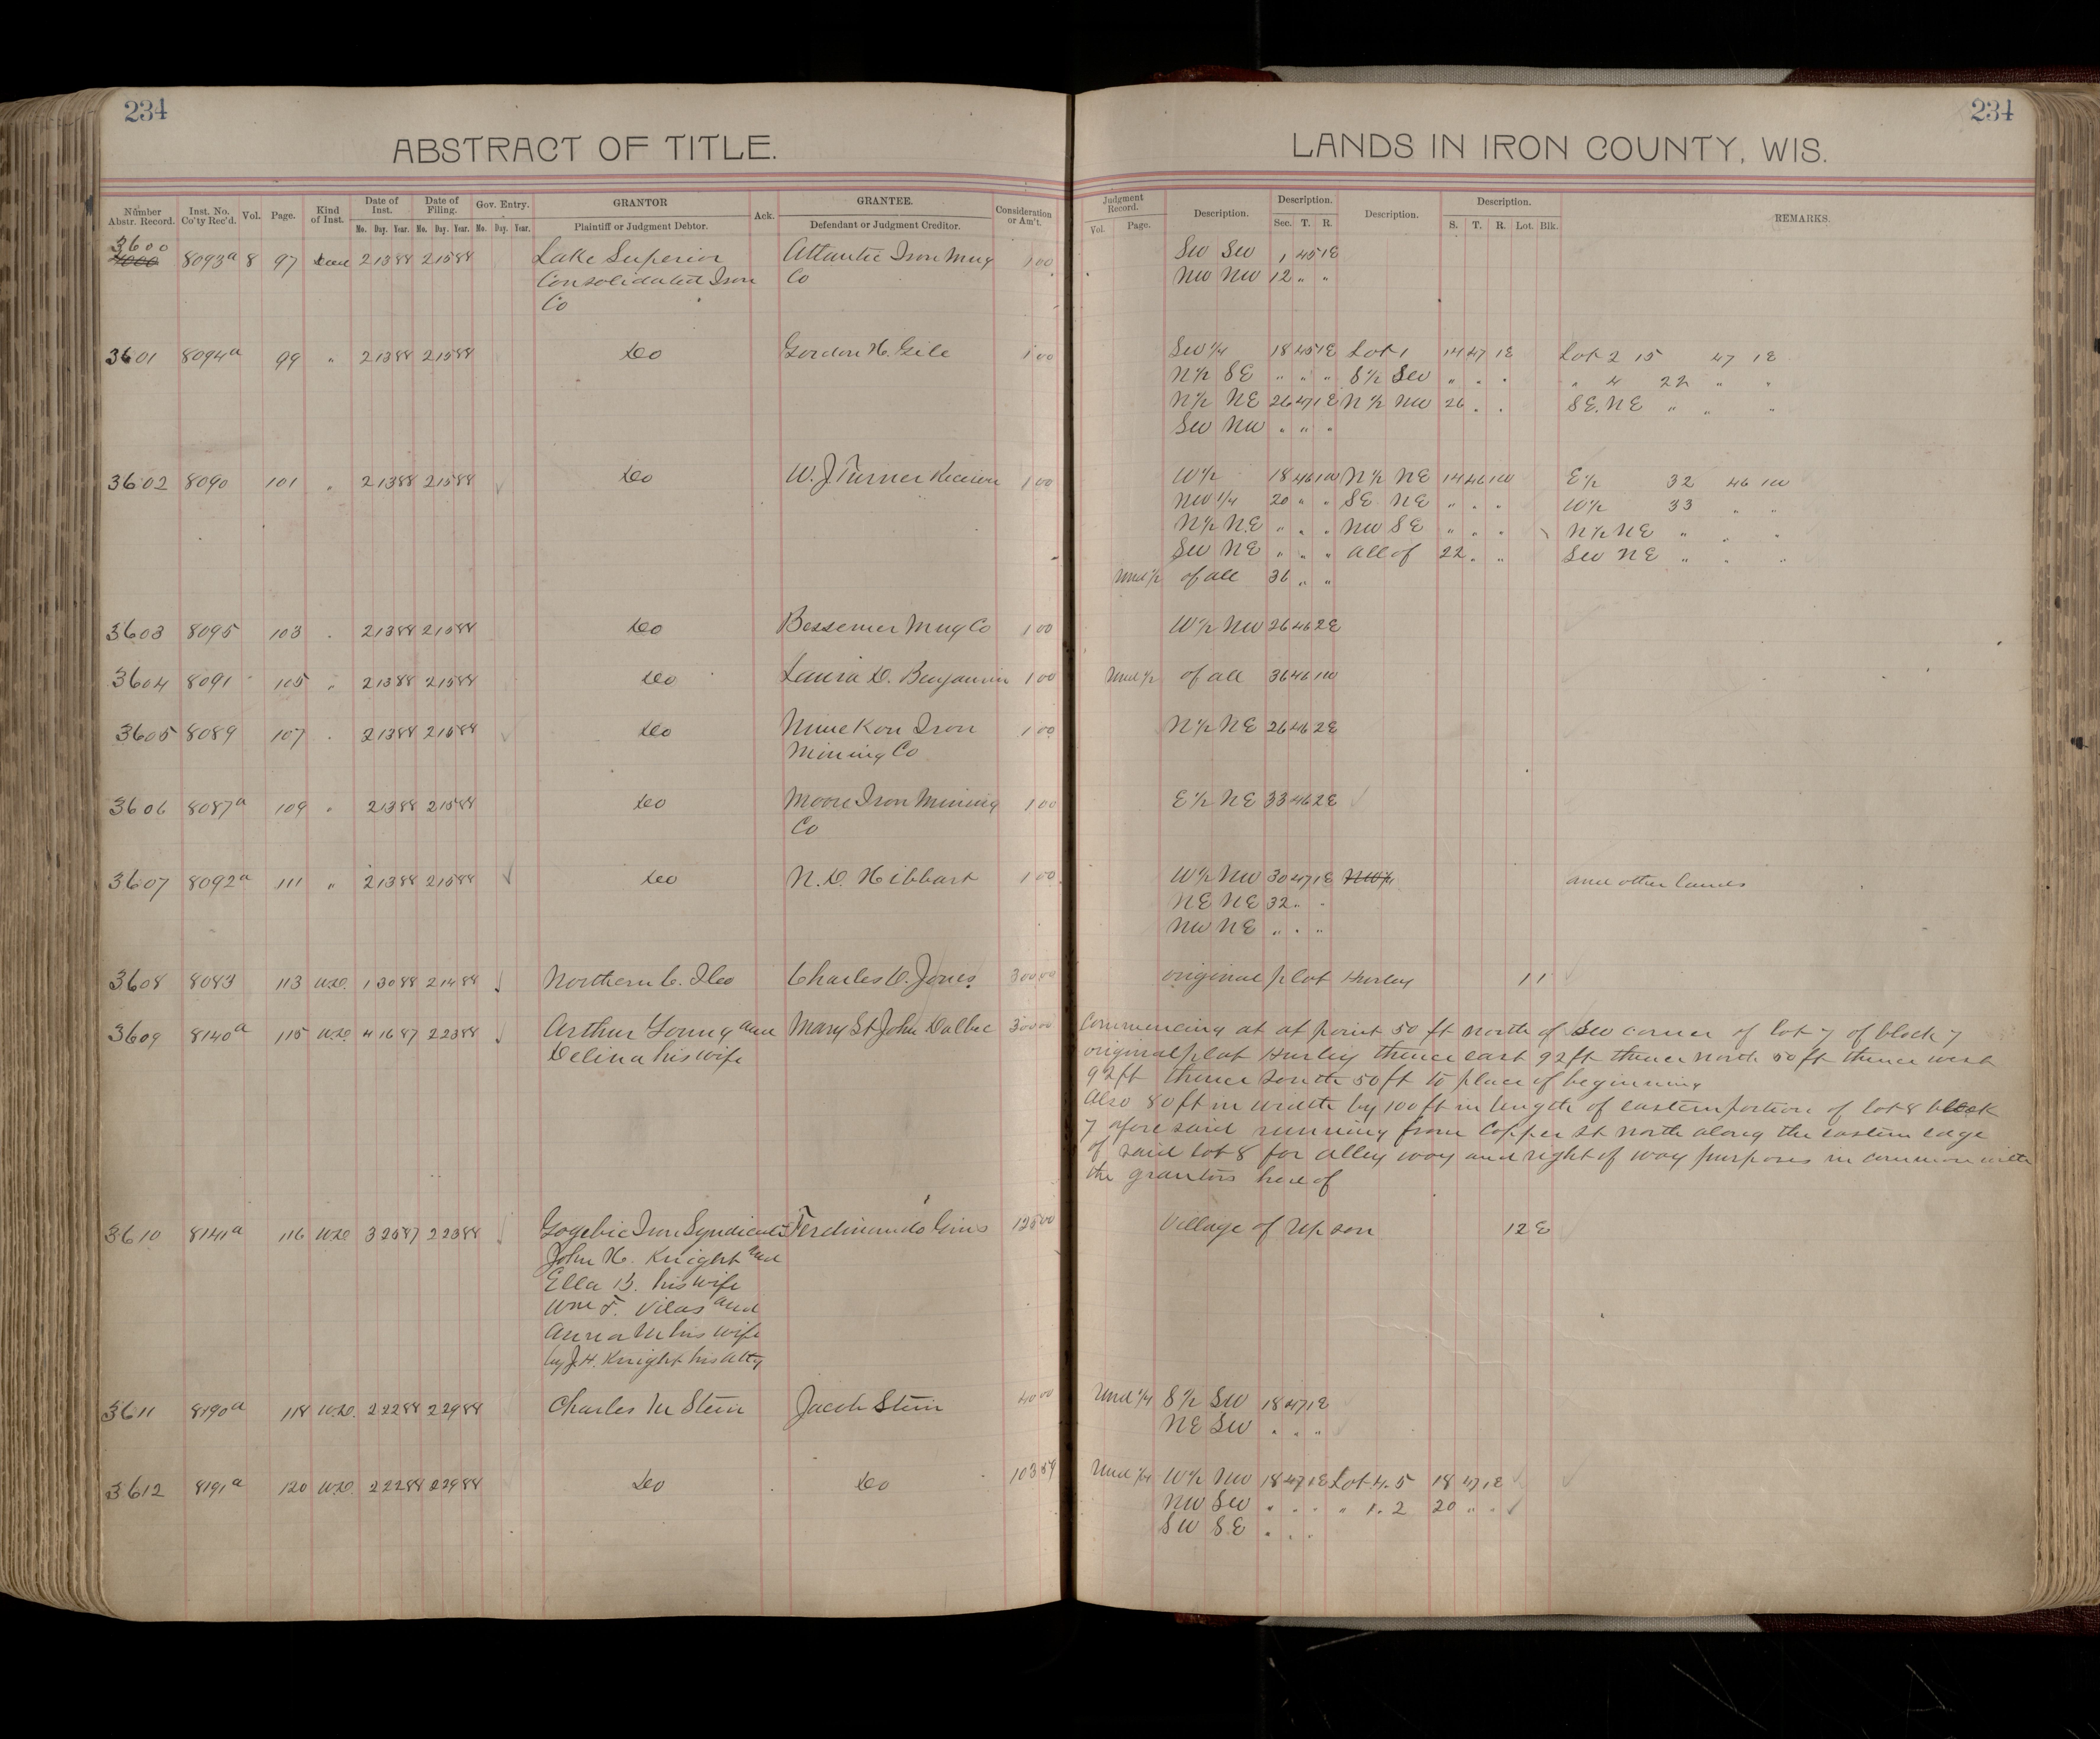 234
234
ABSTRACT OF TITLE.
LANDS IN IRON COUNTY, WIS.
Number Abstr. Record. Inst. No. Co'ty Rec'd. Vol. Page. Kind of Inst. Date of Inst. Date of Filing. Gov. Entry. GRANTOR Ack. GRANTEE. Consideration or Am't. Judgment Record. Description. Description. Description. Description. REMARKS.
Mo. Day. Year. Mo. Day. Year. Mo. Day. Year. Plaintiff or Judgment Debtor. Defendant or Judgment Creditor. Vol. Page. Sec. T. R. S. T. R. Lot. Blk.
3600
4000 8093a 8 97 Deed 2 13 88 2 15 88 Lake Superior Atlantic Iron Mng 1 00 SW SW 1 45 1E
Consolidated Iron Co NW NW 12 " "
Co
3601 8094a 99 " 2 13 88 2 15 88 Do Gordon H. Gile 1 00 SW 1/4 18 45 1E Lot 1 14 47 1E Lot 2 15 47 1E
N 1/2 SE " " " S 1/2 SW " " " " 4 22 " "
N 1/2 NE 26 47 1E N 1/2 NW 26 " " SE NE " " "
SW NW " " "
3602 8090 101 " 2 13 88 2 15 88 Do W. J. Turner Receiver 1 00 W 1/2 18 46 1W N 1/2 NE 14 46 1W E 1/2 32 46 1W
NW 1/4 20 " " SE NE " " " W 1/2 33 " "
N 1/2 NE " " " NW SE " " " N 1/2 NE " " "
SW NE " " " All of 22 " " SW NE " " "
Und 1/2 of all 36 " "
3603 8095 103 " 2 13 88 2 15 88 Do Bessemer Mng Co 1 00 W 1/2 NW 26 46 2E
3604 8091 105 " 2 13 88 2 15 88 Do Laura D. Benjamin 1 00 Und 1/2 of all 36 46 1W
3605 8089 107 " 2 13 88 2 15 88 Do Iron 1 00 N 1/2 NE 26 46 2E
Mining Co
3606 8087a 109 " 2 13 88 2 15 88 Do Moore Iron Mining 1 00 E 1/2 NE 33 46 2E
Co
3607 8092a 111 " 2 13 88 2 15 88 Do N. D. Hibbart 1 00 W 1/2 NW 30 47 1E NW 1/4 and other lands
NE NE 32 " "
NW NE " " "
3608 8083 113 W.D. 1 30 88 2 14 88 Northern C. I Co Charles D. Jones 300 00 original plat Hurley 1 1
3609 8140a 115 W.D. 4 16 87 2 23 88 Arthur Young and Mary St John Dalbec 300 00 Commencing at at point 50 ft north of SW corner of lot 7 of block 7
Delina his wife original plat Hurley thence east 92 ft thence north 50 ft thence west
92 ft thence south 50 ft to place of beginning
Also 80 ft in width by 100 ft in length of eastern portion of lot 8 block
7 aforesaid running from Copper St north along the eastern edge
of said lot 8 for alley way and right of way purposes in common with
the grantors here of
3610 8141a 116 W.D. 3 25 87 2 23 88 Gogebic Iron Syndicate Ferdinando 125 00 Village of Upson 12 E
John H. Knight and
Ella B. his wife
Wm F. Vilas and
Anna M his wife
by J.H. Knight his atty
3611 8190a 118 W.D. 2 22 88 2 29 88 Charles M Stein Jacob Stein 40 00 Und 1/4 S 1/2 SW 18 47 1E
NE SW " " "
3612 8191a 120 W.D. 2 22 88 2 29 88 Do Do 103 59 Und 1/4 W 1/2 NW 18 47 1E Lot 4. 5 18 47 1E
NW SW " " " " 1. 2 20 " "
SW SE " " "